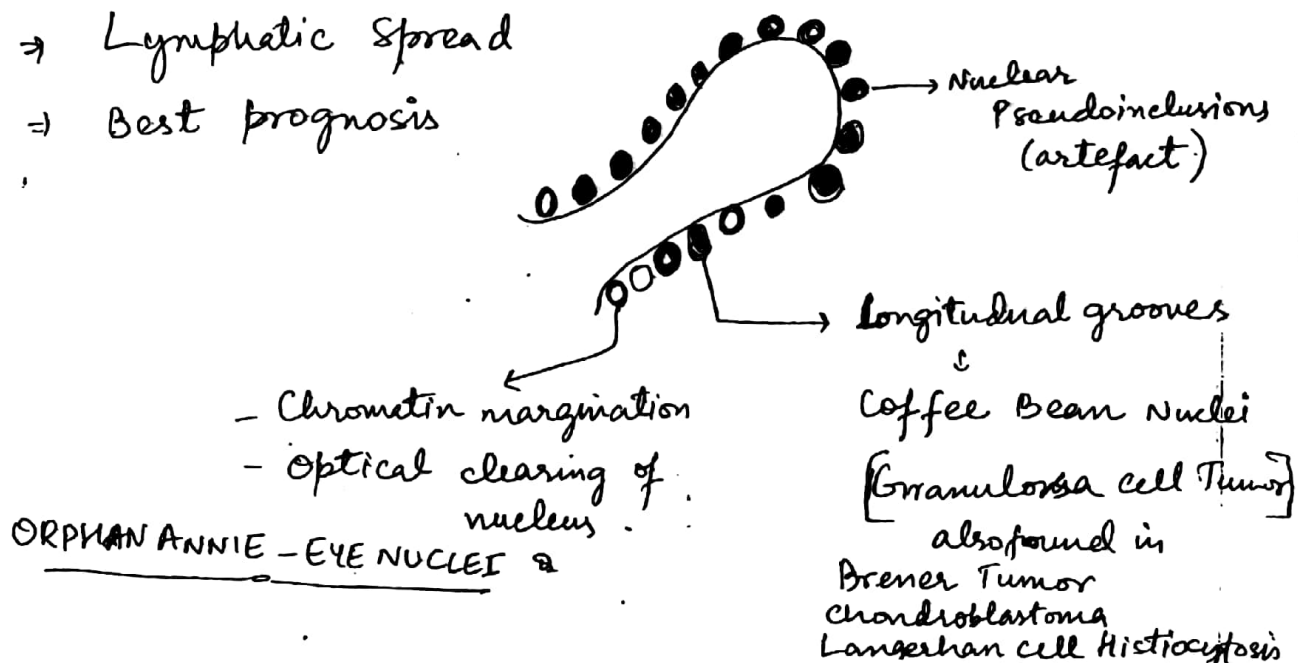 ⇒ Lymphatic Spread
⇒ Best prognosis
Nuclear
Pseudoinclusions
(artefact)
Longitudual grooves
Coffee Bean Nuclei
[Grranulorsa cell Tumor]
also found in
Brener Tumor
Chondroblastoma
Langerhan cell Histiocytosis
- Chromatin margination
- Optical clearing of
nucleus.
ORPHAN ANNIE - EYE NUCLEI